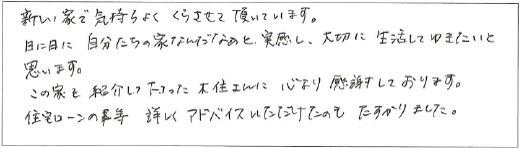 新しい家で気持ちよく くらさせて頂いています。
日に日に 自分たちの家なんだなあと 実感し、大切に 生活してゆきたいと
思います。
この家を 紹介して下さった 木住さんに 心より 感謝しております。
住宅ローンの事等 詳しく アドバイスいただけたのも たすかりました。